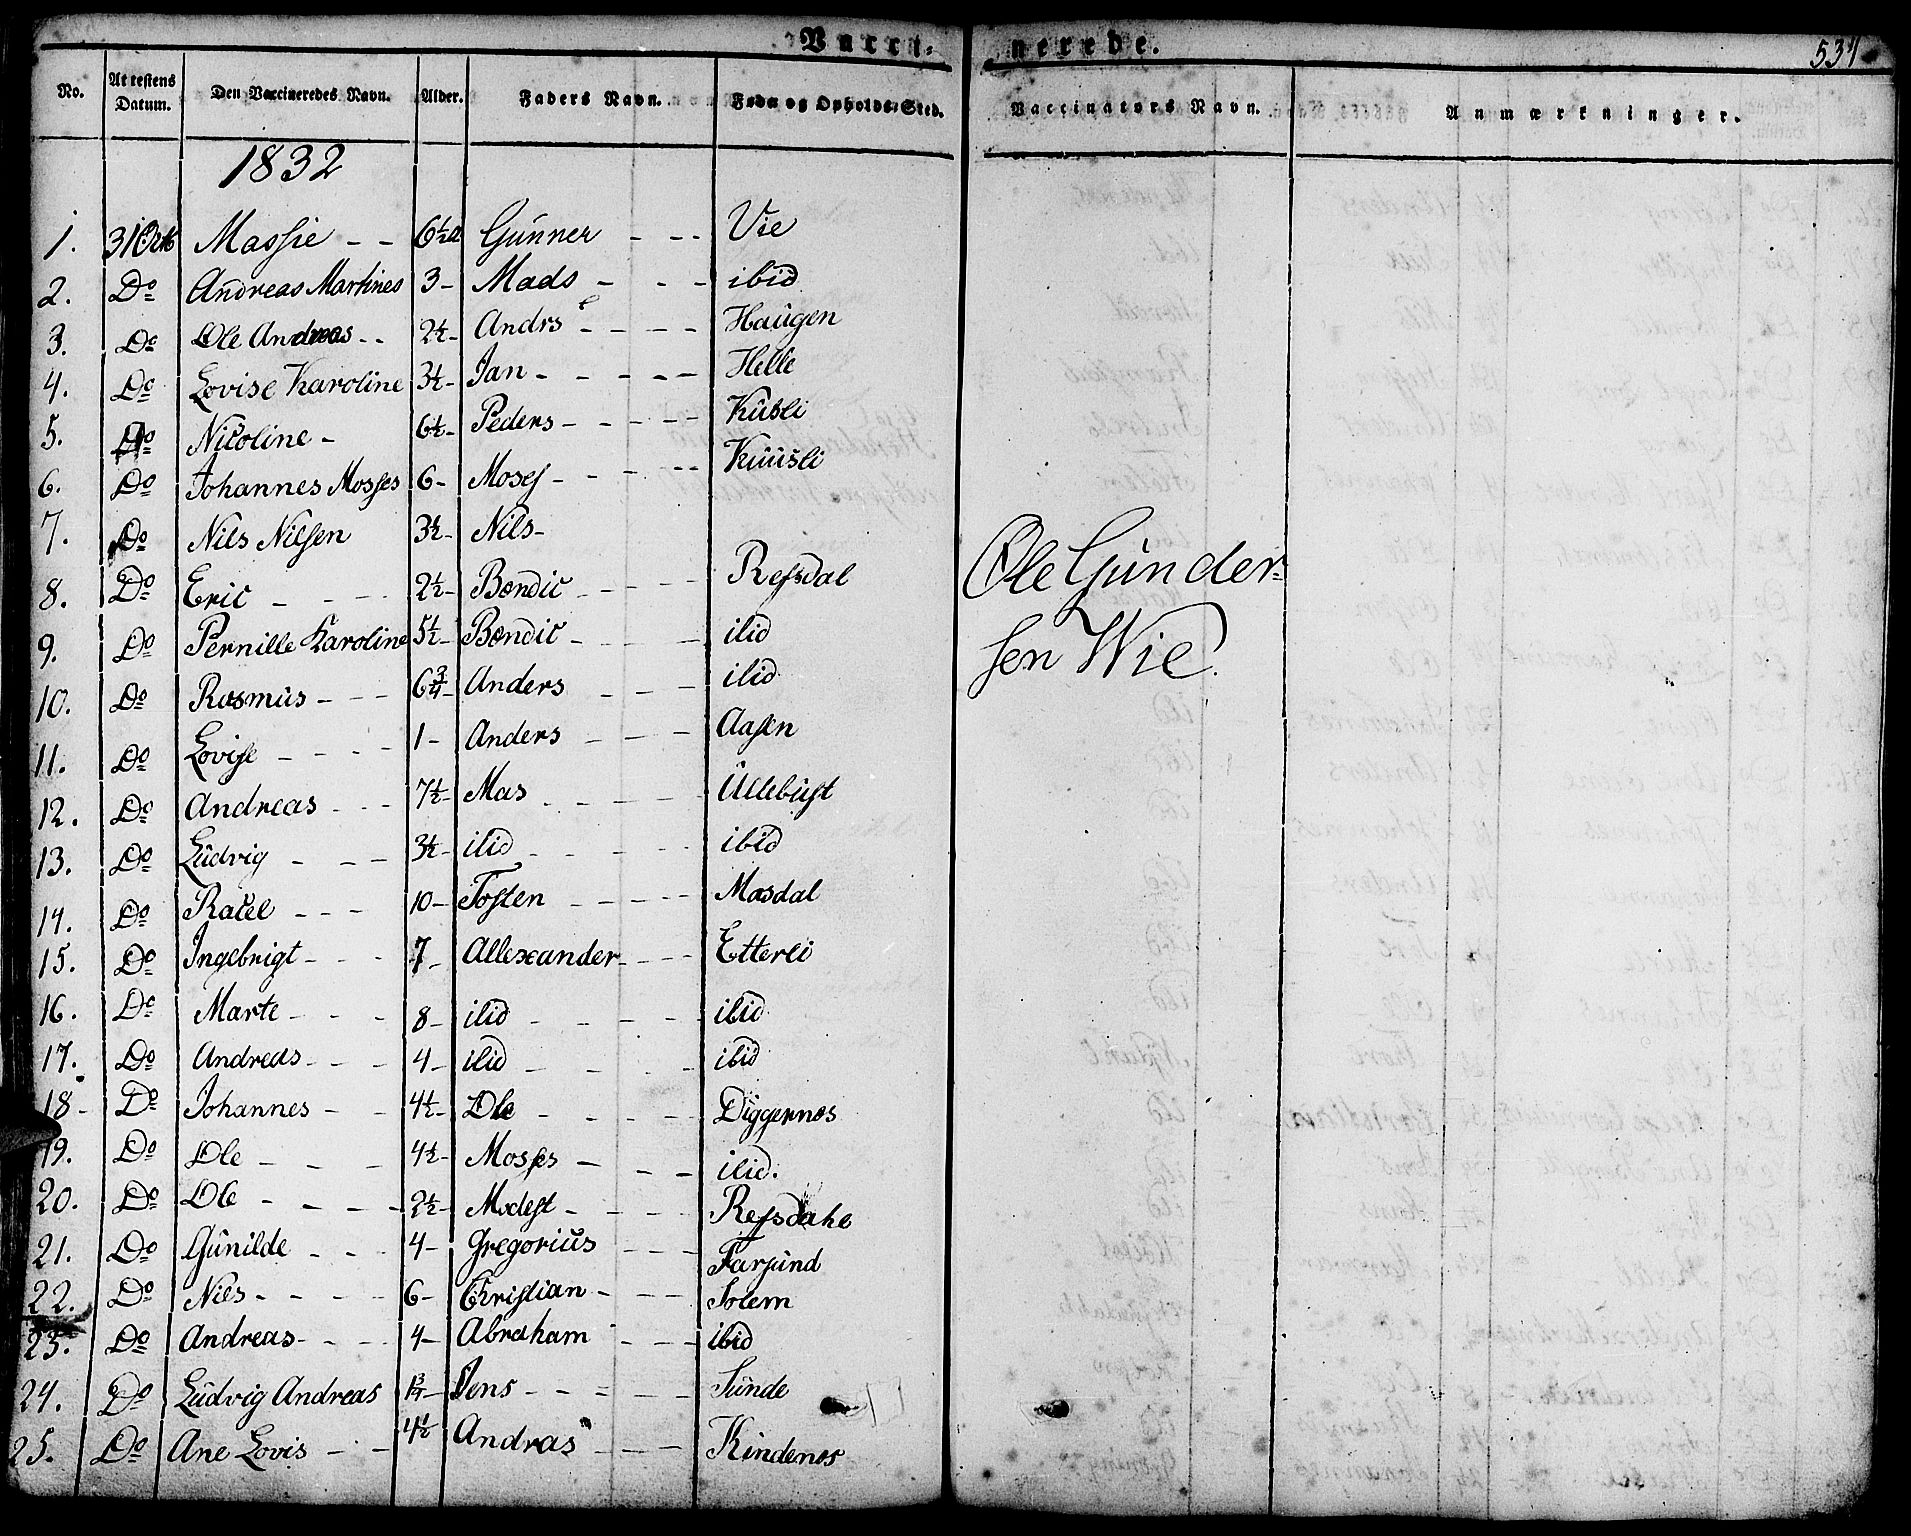 Vacci- nerede. 
No. Attestens Datum. Den Vaccineredes Navn. Alder. Faders Navn. Føde og Opholds-Sted. Vaccinators Navn. Anmærkninger.
1832
1. Massie - - 6½ Gunner - - - Vie
2. Do Andreas Martines 3 - Mads - - - ibid
3. Do Ole Andreas - - 2½ - Andrs - - - - Haugen
4. Do Lovise Karoline 3½ - Jan - - - - - Helle
5. Do Nicoline - 6½ - Peders - - - - Kusli
6. Do Johannes Mosses 6 - Moses - - - - Kuusli
7. Do Nils Nilsen 3½ - Nils -
8. Do Eric - - - - 2½ - Bendic - - - - Refsdal
9. Do Pernille Karoline 5½ - Bendic - - - ilid
10. Do Rasmus - - - 6¾ - Anders - - - ilid
11. Do Lovise - - - - 1 - Anders - - - - Aasen
12. Do Andreas - - - 7½ - Mas - - - - Ullebust
13. Do Ludvig - - - 3½ - ilid - - - - ibid
14. Do Racel - - - 10 - Tosten - - - - - Masdal
15. Do Ingebrigt - - - 7 - Allexander - - - - Etterli
16. Do Marte - - - 8 - ilid - - - - ibid
17. Do Andreas - - - 4 - ilid - - - - ibid
18 - Do Johannes - - 4½ - Ole - - - - Diggernes
19. Do Ole - - - 4½ - Mosses - - - ilid.
20. Do Ole - - - - 2½ - Modest - - - - Refsdahl
21. Do Gunilde - - - 4 - Gregorius - - - Farsund
22. Do Nils - - - - 6 - Christian - - - Solem
23. Do Andreas - - - 4 - Abraham - - - ibid
24. Do Ludvig Andreas 1¾ - Jens - - - - - Sunde
25. Do Ane Lovis - - 4½ Andras - - - Kindenes
Ole Gunder-
sen Wie.